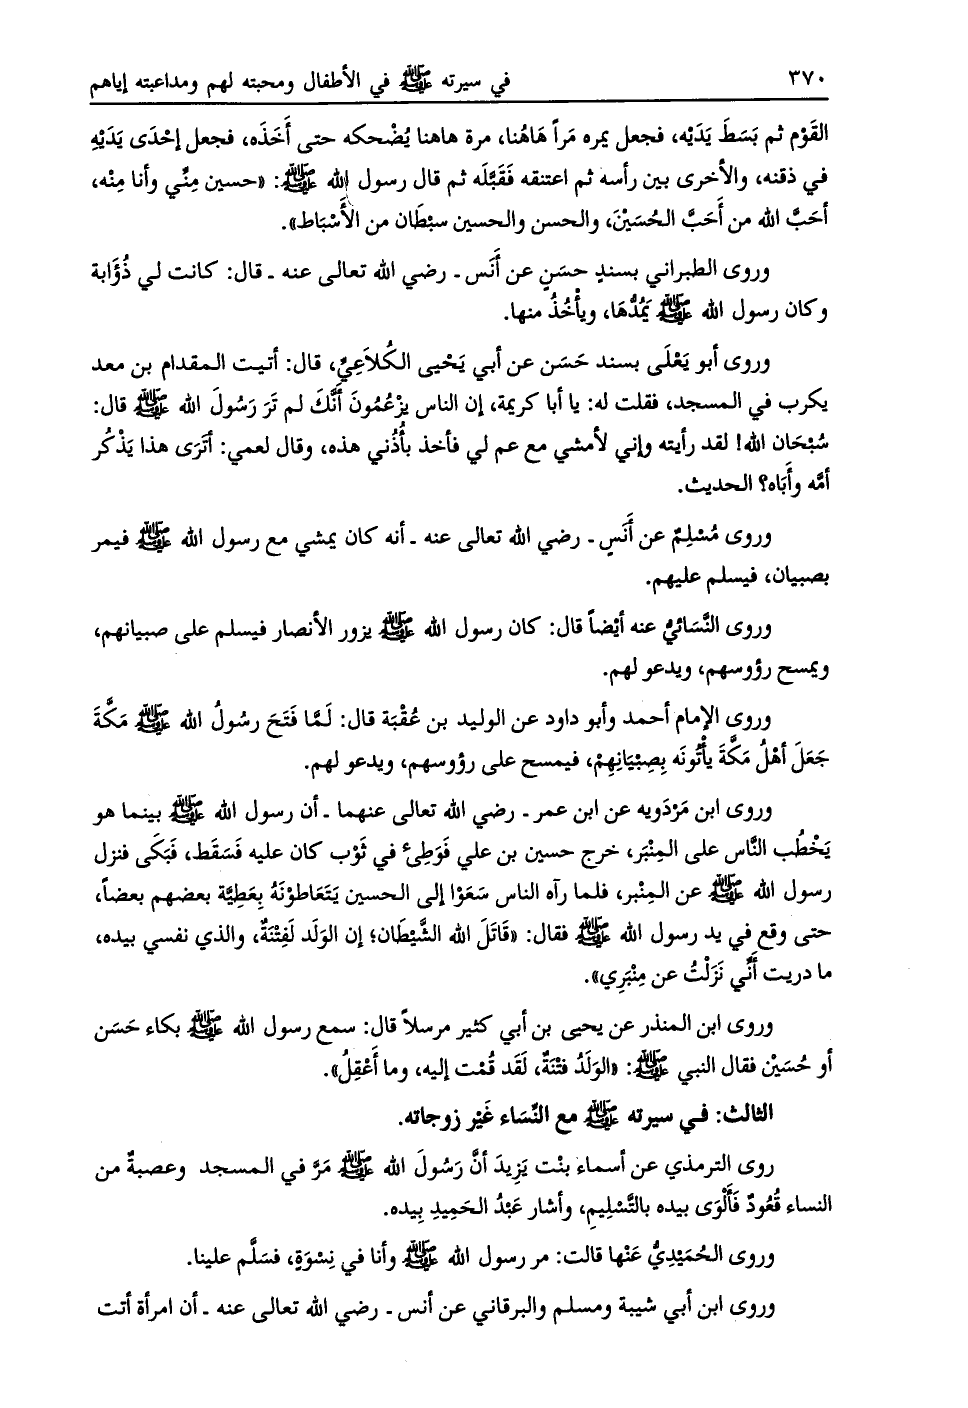 ٣٧٠ في سيرته ﷺ في الأطفال ومحبته لهم ومداعبته إياهم
القَوْم ثم بَسَطَ يَدَيْه، فجعل يمره مَراً هَاهُنا، مرة هاهنا يُضْحكه حتى أَخَذَه، فجعل إحْدَى يَدَيْهِ
في ذقنه، والأخرى بين رأسه ثم اعتنقه فَقَبَّلَه ثم قال رسول الله ﷺ: «حسين مِنِّي وأنا مِنْه،
أحَبَّ الله من أَحَبَّ الحُسَيْنَ، والحسن والحسين سبْطَان من الأَسْبَاط».
وروى الطبراني بسندٍ حسَنٍ عن أَنَس ـ رضي الله تعالى عنه ـ قال: كانت لي ذُؤَابة
وكان رسول الله ﷺ يَمُدُّهَا، ويأْخُذُ منها.
وروى أبو يَعْلَى بسند حَسَن عن أبي يَحْيى الكُلاَعِيِّ، قال: أتيت المقدام بن معد
يكرب في المسجد، فقلت له: يا أبا كريمة، إن الناس يزْعُمُونَ أَنَّكَ لم تَرَ رَسُولَ الله ﷺ قال:
سُبْحَان الله! لقد رأيته وإني لأمشي مع عم لي فأخذ بأُذُني هذه، وقال لعمي: أتَرَى هذا يَذْكُر
أمَّه وأَبَاه؟ الحديث.
وروى مُسْلِمٌ عن أَنَسٍ ـ رضي الله تعالى عنه ـ أنه كان يمشي مع رسول الله ﷺ فيمر
بصبيان، فيسلم عليهم.
وروى النَّسَائيُّ عنه أيْضاً قال: كان رسول الله ﷺ يزور الأنصار فيسلم على صبيانهم،
ويمسح رؤوسهم، ويدعو لهم.
وروى الإمام أحمد وأبو داود عن الوليد بن عُقْبَة قال: لَمَّا فَتَحَ رسُولُ الله ﷺ مَكَّةَ
جَعَلَ أهْلُ مَكَّةَ يأْتُونَه بِصِبْيَانِهِمْ، فيمسح على رؤوسهم، ويدعو لهم.
وروى ابن مَرْدَويه عن ابن عمر ـ رضي الله تعالى عنهما ـ أن رسول الله ﷺ بينما هو
يَخْطُب النَّاس على المِنْبَر، خرج حسين بن علي فَوَطِئ في ثَوْب كان عليه فَسَقَط، فَبَكَى فنزل
رسول الله ﷺ عن المِنْبر، فلما رآه الناس سَعَوْا إلى الحسين يَتَعَاطَوْنَهُ بِعَطِيَّة بعضهم بعضاً،
حتى وقع في يد رسول الله ﷺ فقال: «قَاتَلَ الله الشَّيْطَان؛ إن الوَلَد لَفِتْنَةٌ، والذي نفسي بيده،
ما دريت أَنِّي نَزَلْتُ عن مِنْبَرِي».
وروى ابن المنذر عن يحيى بن أبي كثير مرسلاً قال: سمع رسول الله ﷺ بكاء حَسَن
أو حُسَيْن فقال النبي ﷺ: «الوَلَدُ فتْنَةٌ، لَقَد قُمْت إليه، وما أَعْقِلُ».
الثالث: في سيرته ﷺ مع النِّسَاء غَيْر زوجاته.
روى الترمذي عن أسماء بنْت يَزِيدَ أنَّ رَسُولَ الله ﷺ مَرَّ في المسجد وعصبةٌ من
النساء قُعُودٌ فَأَلْوَى بيده بالتَّسْلِيمِ، وأشار عَبْدُ الحَمِيدِ بِيده.
وروى الحُمَيْدِيُّ عَنْها قالت: مر رسول الله ﷺ وأنا في نِسْوَةٍ، فسَلَّم علينا.
وروى ابن أبي شيبة ومسلم والبرقاني عن أنس ـ رضي الله تعالى عنه ـ أن امرأة أتت